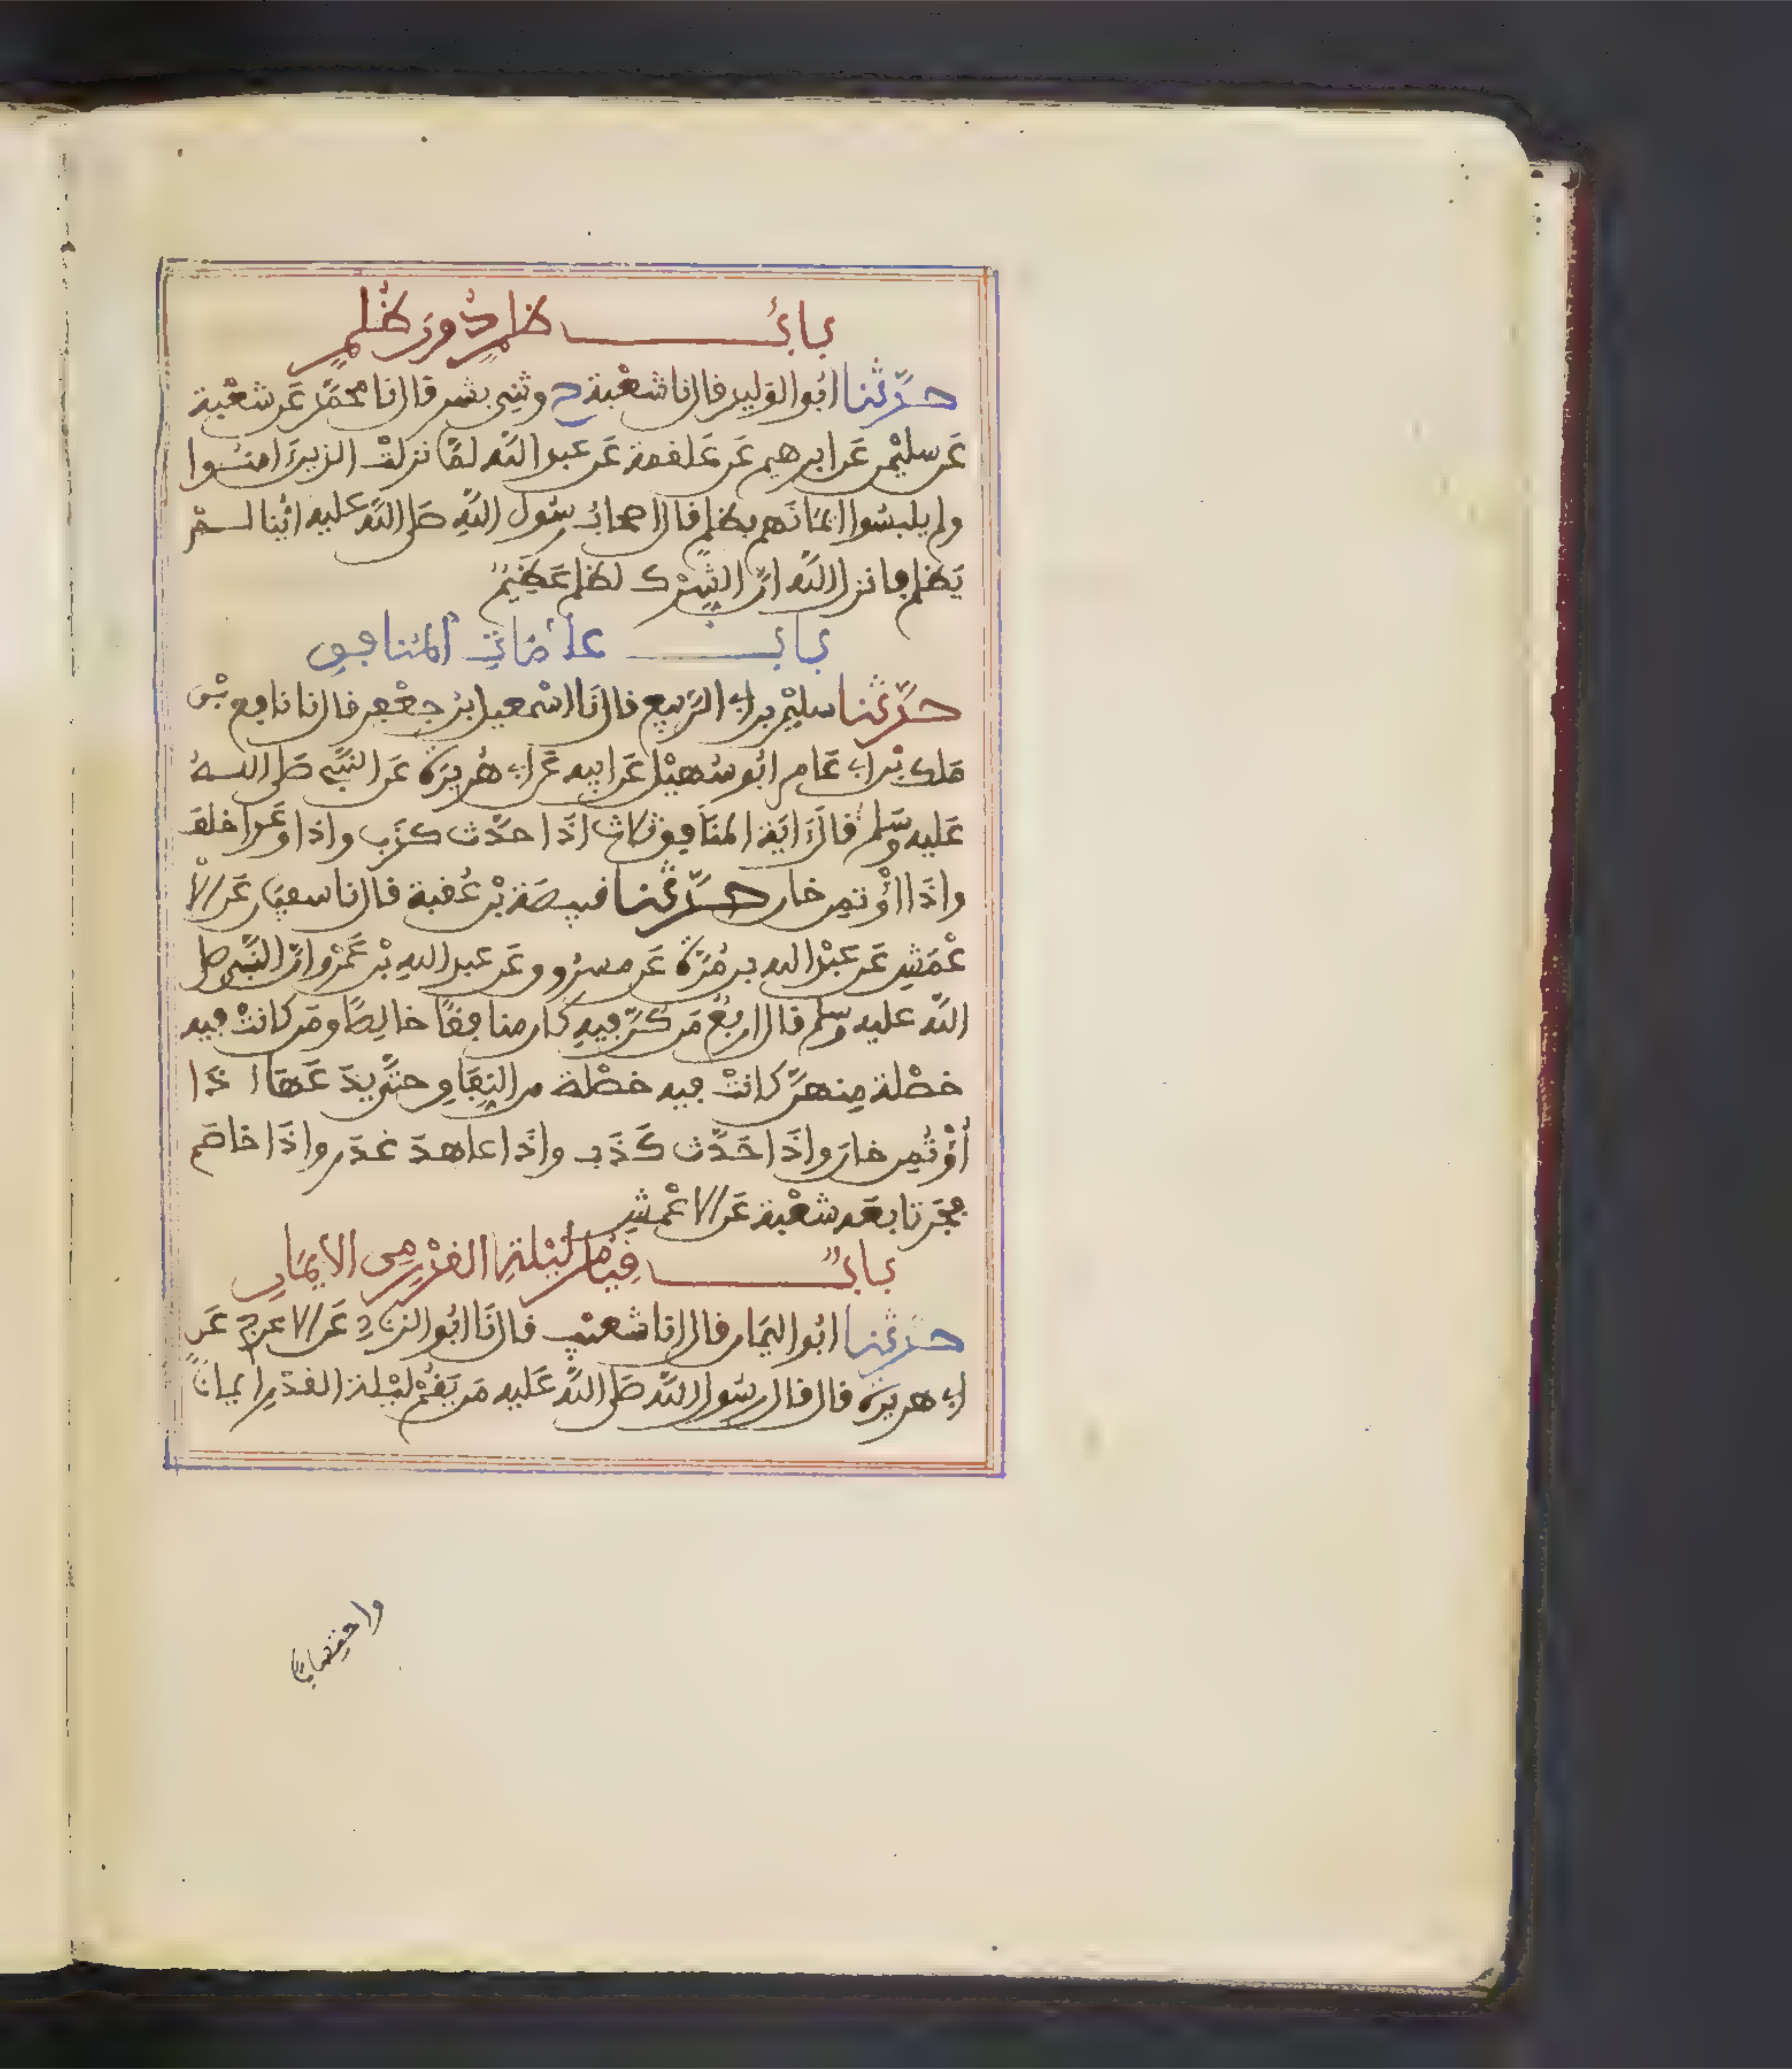 باب ظلم دون ظلم
حدثنا ابو الوليد قال نا شعبة ح وثنى بشر قال نا محمد عن شعبة
عن سليمن عن ابرهيم عن علقمة عن عبد الله لما نزلت الذين امنوا
ولم يلبسوا ايمانهم بظلم قال اصحاب رسول الله صلى الله عليه اينا لم
يظلم فانزل الله ان الشرك لظلم عظيم
باب علامات المنافق
حدثنا سليمن بن ابى الربيع قال نا اسمعيل بن جعفر قال نا نافع بن
ملك بن ابى عامر ابو سهيل عن ابيه عن ابى هريرة عن النبي صلى الله
عليه وسلم قال اية المنافق ثلاث اذا حدث كذب واذا وعد اخلف
واذا اؤتمن خان حدثنا قبيصة بن عقبة قال نا سفين عن الا
عمش عن عبد الله بن مرة عن مسروق عن عبد الله بن عمرو ان النبي صلى
الله عليه وسلم قال اربع من كن فيه كان منافقا خالصا ومن كانت فيه
خصلة منهن كانت فيه خصلة من النفاق حتى يدعها اذا
اؤتمن خان واذا حدث كذب واذا عاهد غدر واذا خاصم
فجر تابعه شعبة عن الاعمش
باب قيام ليلة القدر من الايمان
حدثنا ابو اليمان قال انا شعيب قال نا ابو الزناد عن الاعرج عن
ابى هريرة قال قال رسول الله صلى الله عليه من يقم ليلة القدر ايمانا
واحتسابا